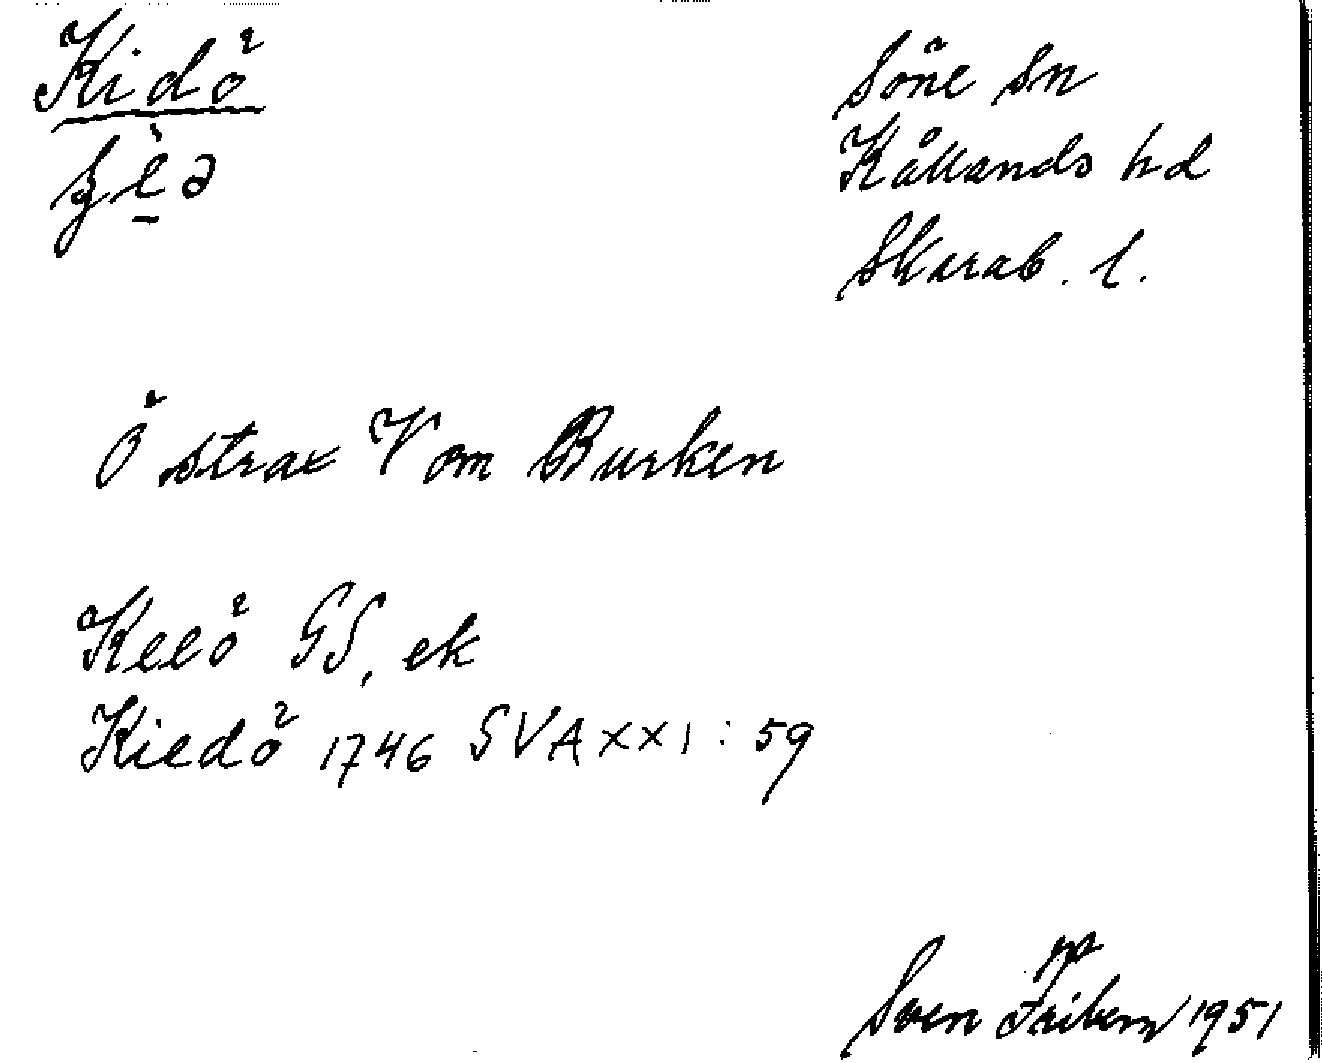 Kidö
Söne sn
Kållands hd
Skarab. l.
Ö strax V om Burken
Keeö GS, ek
Kiedö 1746 SVA XXI: 59
Sven 1951